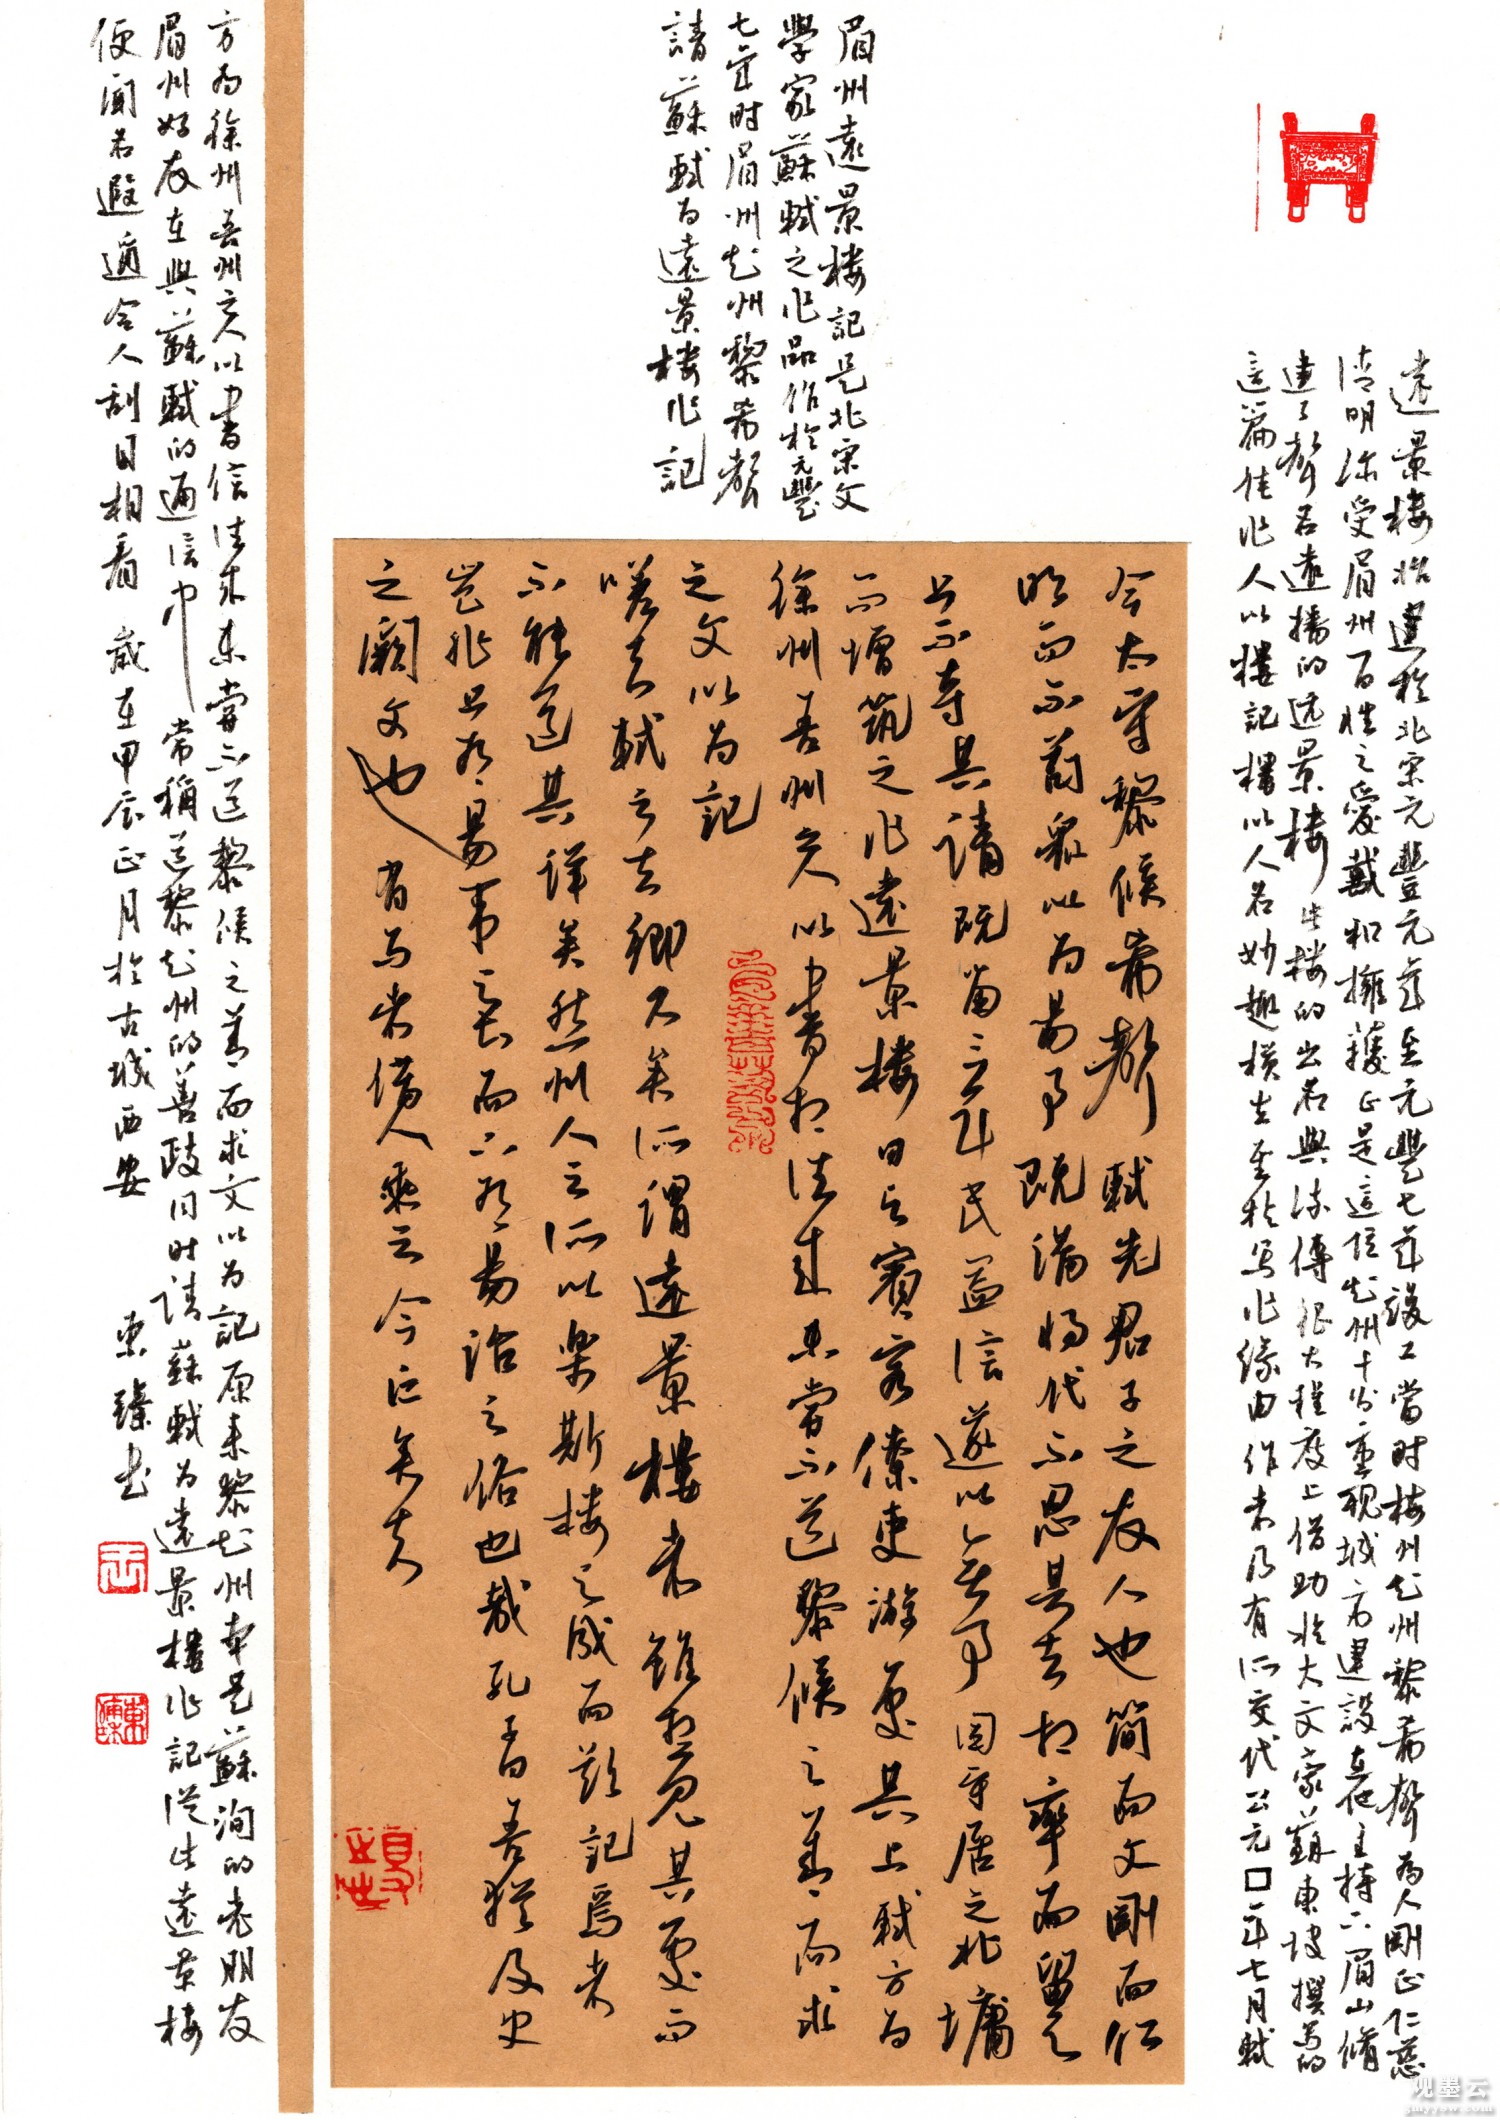 遠景楼始建於北宋元豐元年至元豐七年竣工當时梅州知州黎希聲為人剛正仁慈
清明深受眉州百姓之愛戴和擁護正是這位知州十分重視城市建設在他主持下眉山脩
建了聲名遠播的远景楼此楼的出名與流傳很大程度上借助於大文家蘇東坡撰寫的
這篇佳作人以樓記樓以人名妙趣横生至於写作缘由作末乃有所交代公元□年七月軾
眉州遠景楼記是北宋文
學家蘇軾之作品作於元豐
七年时眉州知州黎希聲
請蘇軾为遠景楼作記
今太守黎候希聲軾先君子之友人也簡而文剛而仁
明而不苟衆以为易事既满将代不忍其去相率而留之
上不奪其請既留三年民益信遂以無事因守居之北墉
而增筑之作遠景楼日与賓客僚吏游處其上軾方为
徐州吾州之人以書相往来未嘗不道黎候之善而求
之文以为記
嗟夫軾之去鄉久矣所謂遠景樓者雖想見其處而
不能道其詳矣然州人之所以樂斯楼之成而欲記焉者
豈非上有易事之長而下有易治之俗也哉孔子曰吾猶及史
之闕文也有马者借人乘之今亡矣夫
方为徐州吾州之人以書信往来未嘗不道黎候之善而求文以为記原来黎知州本是蘇洵的老朋友
眉州好友在與蘇軾的通信中常稱道黎知州的善政同时請蘇軾为遠景樓作記從此遠景楼
便聞名遐邇令人刮目相看 歲在甲辰正月於古城西安 東臻书
观墨云
gmyyow.com